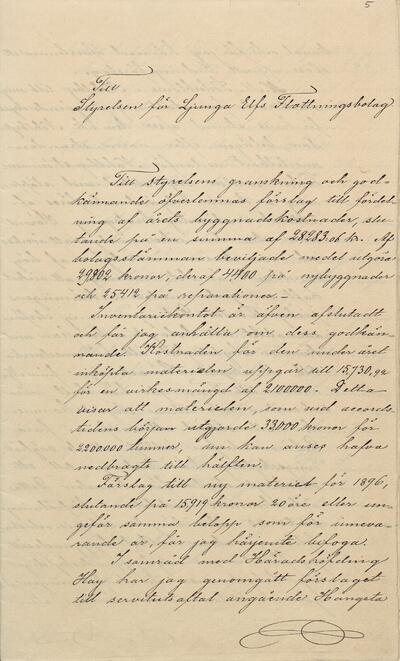 5
Till
Styrelsen för Ljunga Elfs Flottningsbolag
Till styrelsens granskning och god-
kännande öfverlemnas förslag till fördel-
ning af årets byggnadskostnader, slu-
tande på en summa af 28283.06 kr. Af
bolagsstämman beviljade medel utgöra
29,802 kronor, deraf 4400 på nybyggnader
och 25412 på reparationer. –
Inventariekontot är äfven afslutadt
och får jag anhålla om dess godkän-
nande. Kostnaden för den under året
inköpta materielen uppgår till 15,730,92
för en virkesmängd af 2100000. Detta
visar att materielen, som vid accords-
tidens början utgjorde 33,000 kronor för
2200.000 timmer, nu kan anses hafva
nedbragts till hälften.
Förslag till ny materiel för 1896,
slutande på 15,919 kronor 20 öre eller un-
gefär samma belopp som för inneva-
rande år, får jag härjemte bifoga.
I samråd med Häradshöfding
Hay har jag genomgått förslaget
till servitutsaftal angående Hångsta